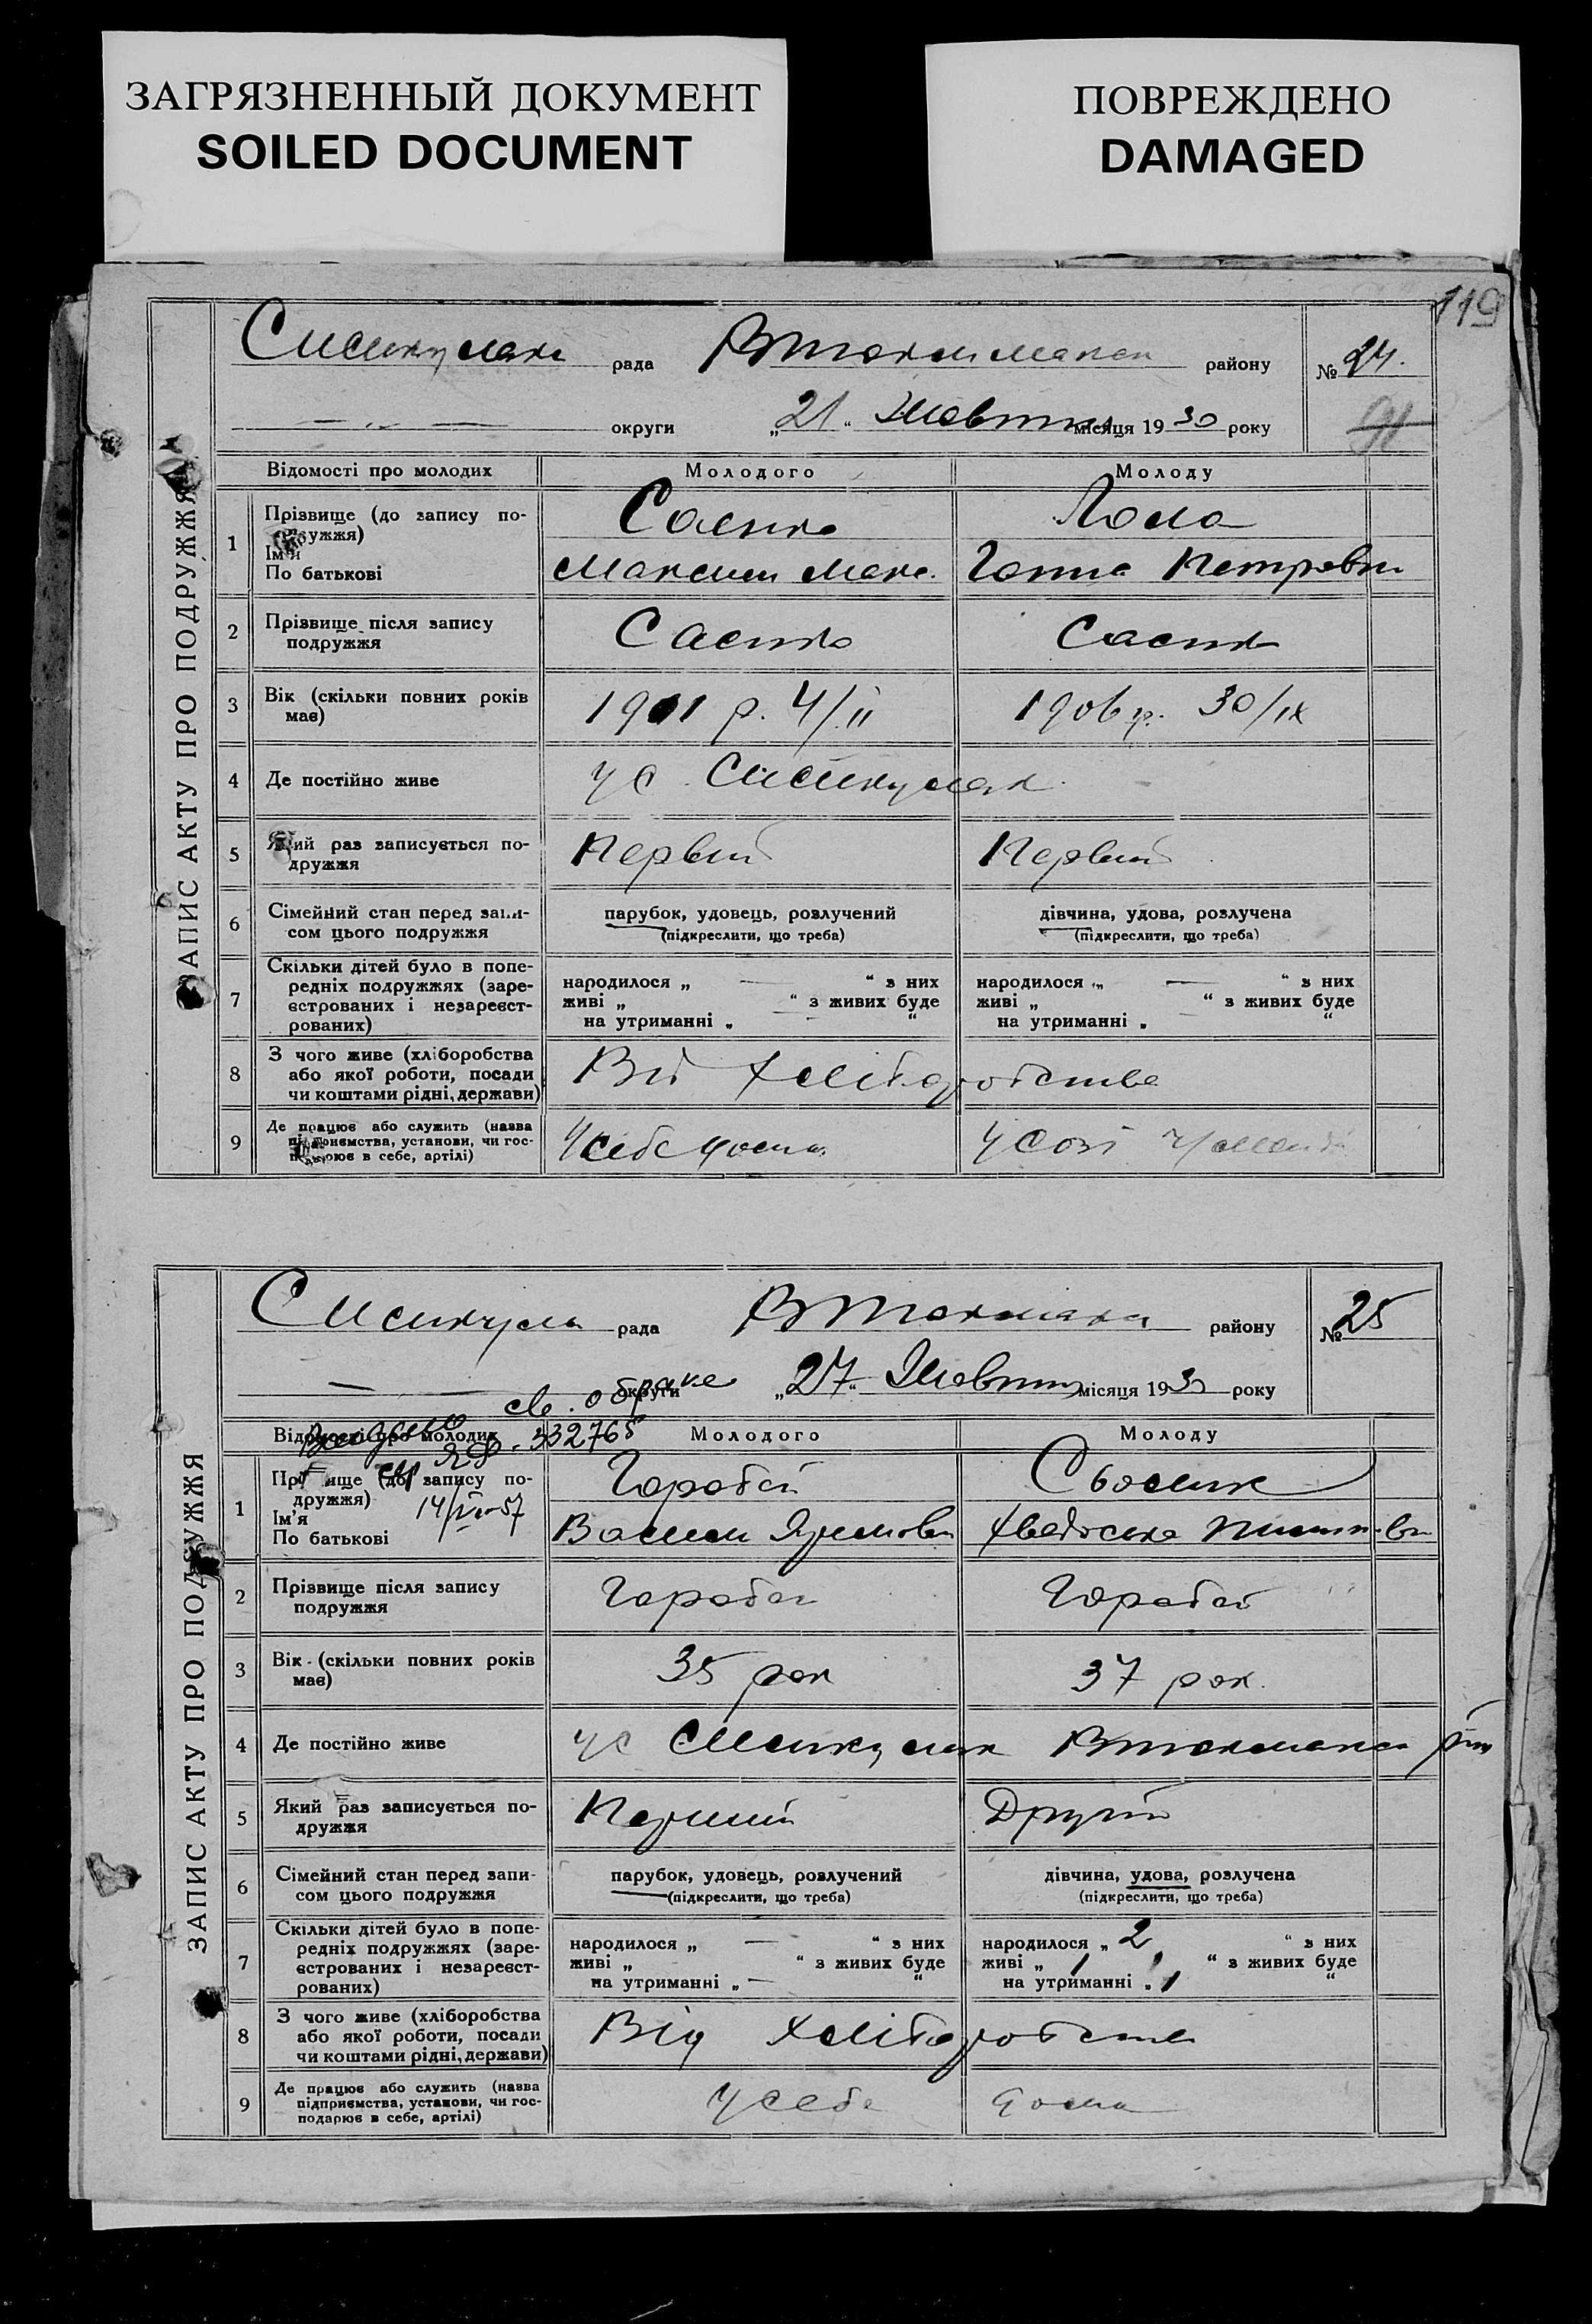 ЗАГРЯЗНЕННЫЙ ДОКУМЕНТ
SOILED DOCUMENT
ПОВРЕЖДЕНО
DAMAGED
119
ЗАПИС АКТУ ПРО ПОДРУЖЖЯ
рада району № 24.
— " — округи „21“ Жовтня місяця 1930 року
Відомості про молодих Молодого Молоду
1 Прізвище (до запису по-
дружжя) Саєнко
Ім'я
По батькові Максим Макс. Ганна Петровн
2 Прізвище після запису
подружжя Саенко Саенко
3 Вік (скільки повних років
має) 1901 р. 4/II 1906 р. 30/IX
4 Де постійно живе у с.
5 Який раз записується по-
дружжя Первий Первий
6 Сімейний стан перед запи-
сом цього подружжя
парубок, удовець, розлучений
(підкреслити, що треба)
дівчина, удова, розлучена
(підкреслити, що треба)
7 Скільки дітей було в попе-
редніх подружжях (заре-
єстрованих і незареєст-
рованих)
народилося „ — “ з них
живі „ “ з живих буде
на утриманні „ “
народилося „ — “ з них
живі „ “ з живих буде
на утриманні „ “
8 З чого живе (хліборобства
або якої роботи, посади
чи коштами рідні, держави)
Від хліборобства
9 Де працює або служить (назва
підприємства, установи, чи гос-
подарює в себе, артілі)
У себе дома у созі
ЗАПИС АКТУ ПРО ПОДРУЖЖЯ
рада району № 25
— — округи „27“ Жовтня місяця 1930 року
св. о браке
Выдано
ЯФ. 332765
14/VI-57
Відомості про молодих Молодого Молоду
1 Прізвище (до запису по-
дружжя) Горобей
Ім'я
По батькові Василь Яремови Хведоська
2 Прізвище після запису
подружжя Горобей Горобей
3 Вік (скільки повних років
має) 35 рок 37 рок.
4 Де постійно живе у с
5 Який раз записується по-
дружжя Перший Другий
6 Сімейний стан перед запи-
сом цього подружжя
парубок, удовець, розлучений
(підкреслити, що треба)
дівчина, удова, розлучена
(підкреслити, що треба)
7 Скільки дітей було в попе-
редніх подружжях (заре-
єстрованих і незареєст-
рованих)
народилося „ — “ з них
живі „ “ з живих буде
на утриманні „ — “
народилося „ 2 “ з них
живі „ 1 “ з живих буде
на утриманні „ 1 “
8 З чого живе (хліборобства
або якої роботи, посади
чи коштами рідні, держави)
Від хліборобства
9 Де працює або служить (назва
підприємства, установи, чи гос-
подарює в себе, артілі)
у себе дома